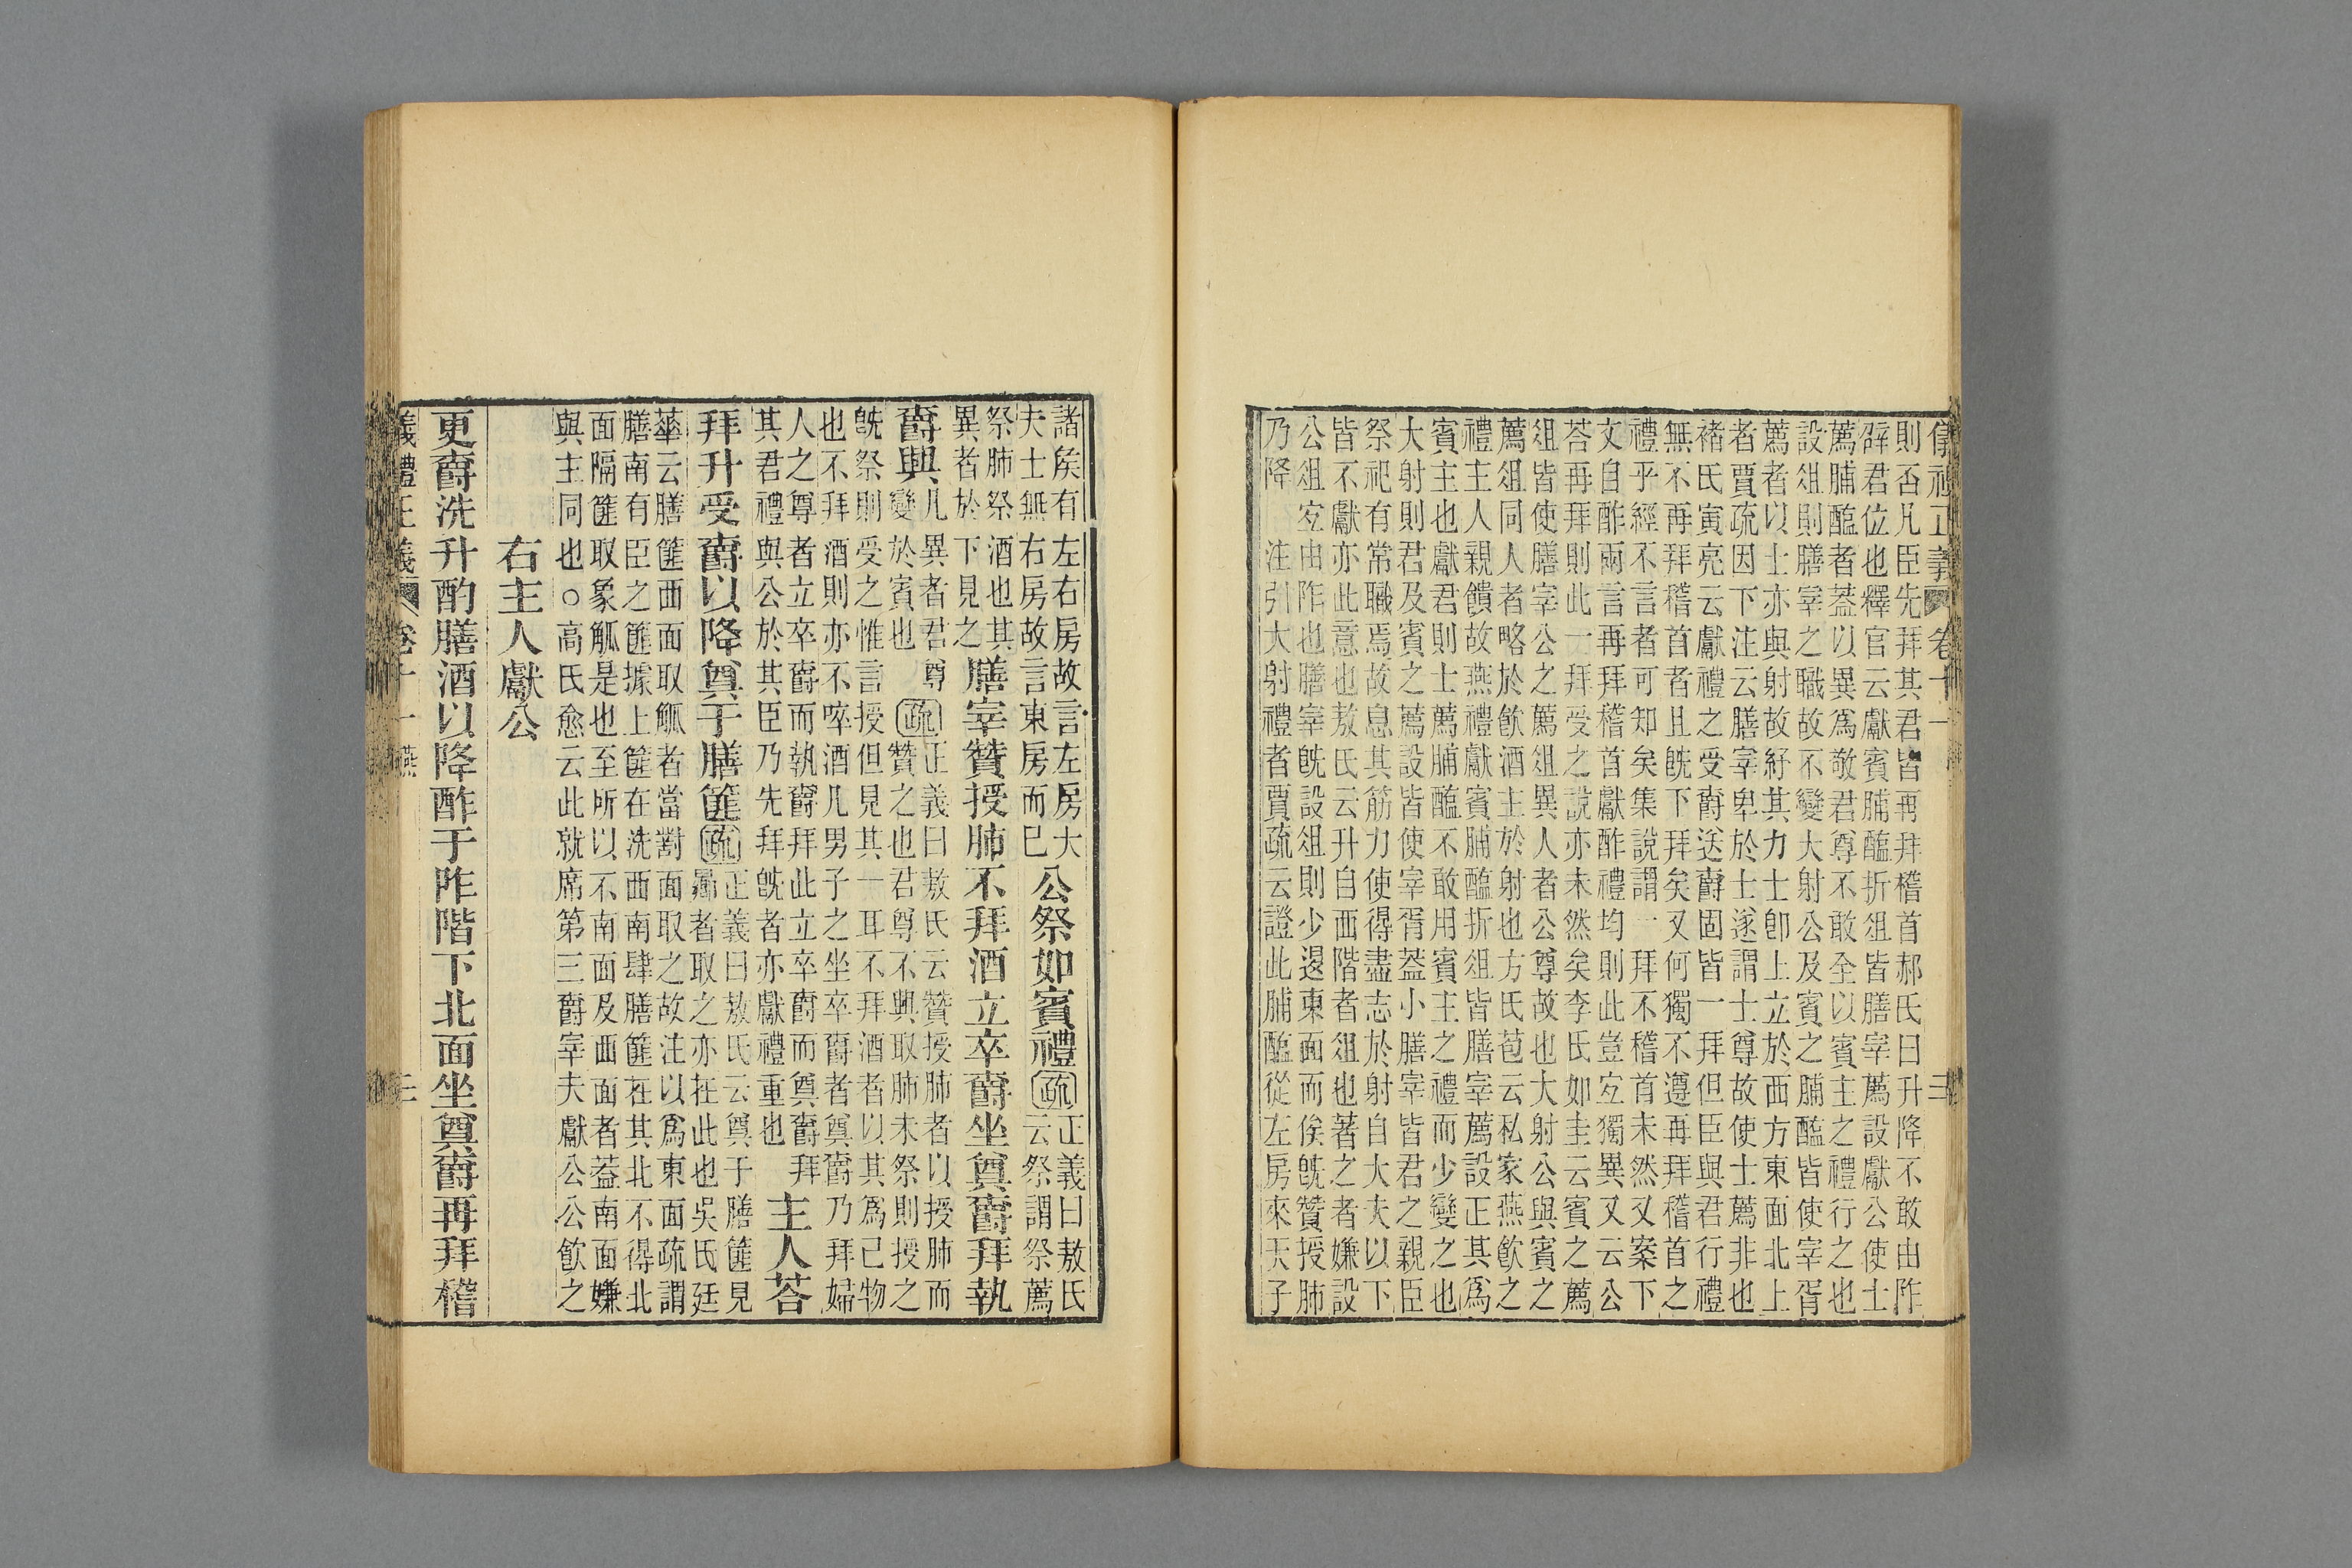 儀禮正義 卷十一 三
則否凡臣先拜其君皆再拜稽首郝氏曰升降不敢由阼
辟君位也釋官云獻賓脯醢折俎皆膳宰薦設獻公使士
薦脯醢者蓋以異爲敬君尊不敢全以賓主之禮行之也
設俎則膳宰之職故不變大射公及賓之脯醢皆使宰胥
薦者以士亦與射故紓其力士卽上立於西方東面北上
者賈疏因下注云膳宰卑於士遂謂士尊故使士薦非也
褚氏寅亮云獻禮之受爵送爵固皆一拜但臣與君行禮
無不再拜稽首者且旣下拜矣又何獨不遵再拜稽首之
禮乎經不言者可知矣集說謂一拜不稽首未然又案下
文自酢兩言再拜稽首獻酢禮均則此豈宐獨異又云公
荅再拜則此一拜受之說亦未然矣李氏如圭云賓之薦
俎皆使膳宰公之薦俎異人者公尊故也大射公與賓之
薦俎同人者略於飮酒主於射也方氏苞云私家燕飮之
禮主人親饋故燕禮獻賓脯醢折俎皆膳宰薦設正其爲
賓主也獻君則士薦脯醢不敢用賓主之禮而少變之也
大射則君及賓之薦設皆使宰胥蓋小膳宰皆君之親臣
祭祀有常職焉故息其筋力使得盡志於射自大夫以下
皆不獻亦此意也敖氏云升自西階者俎也著之者嫌設
公俎宐由阼也膳宰旣設俎則少退東面而俟旣贊授肺
乃降 注引大射禮者賈疏云證此脯醢從左房來天子
諸矦有左右房故言左房大
夫士無右房故言東房而已
公祭如賓禮 疏
正義曰敖氏
云祭謂祭薦
祭肺祭酒也其
異者於下見之
膳宰贊授肺不拜酒立卒爵坐奠爵拜執
爵興
凡異者君尊
變於賓也
疏
正義曰敖氏云贊授肺者以授肺而
贊之也君尊不興取肺未祭則授之
旣祭則受之惟言授但見其一耳不拜酒者以其爲己物
也不拜酒則亦不啐酒凡男子之坐卒爵者奠爵乃拜婦
人之尊者立卒爵而執爵拜此立卒爵而奠爵拜
其君禮與公於其臣乃先拜旣者亦獻禮重也
主人荅
拜升受爵以降奠于膳篚 疏
正義曰敖氏云奠于膳篚見
曏者取之亦在此也吳氏廷
華云膳篚西面取觚者當對面取之故注以爲東面疏謂
膳南有臣之篚據上篚在洗西南肆膳篚在其北不得北
面隔篚取象觚是也至所以不南面及西面者蓋南面嫌
與主同也○高氏愈云此就席第三爵宰夫獻公公飮之
右主人獻公
更爵洗升酌膳酒以降酢于阼階下北面坐奠爵再拜稽
儀禮正義 卷十一燕